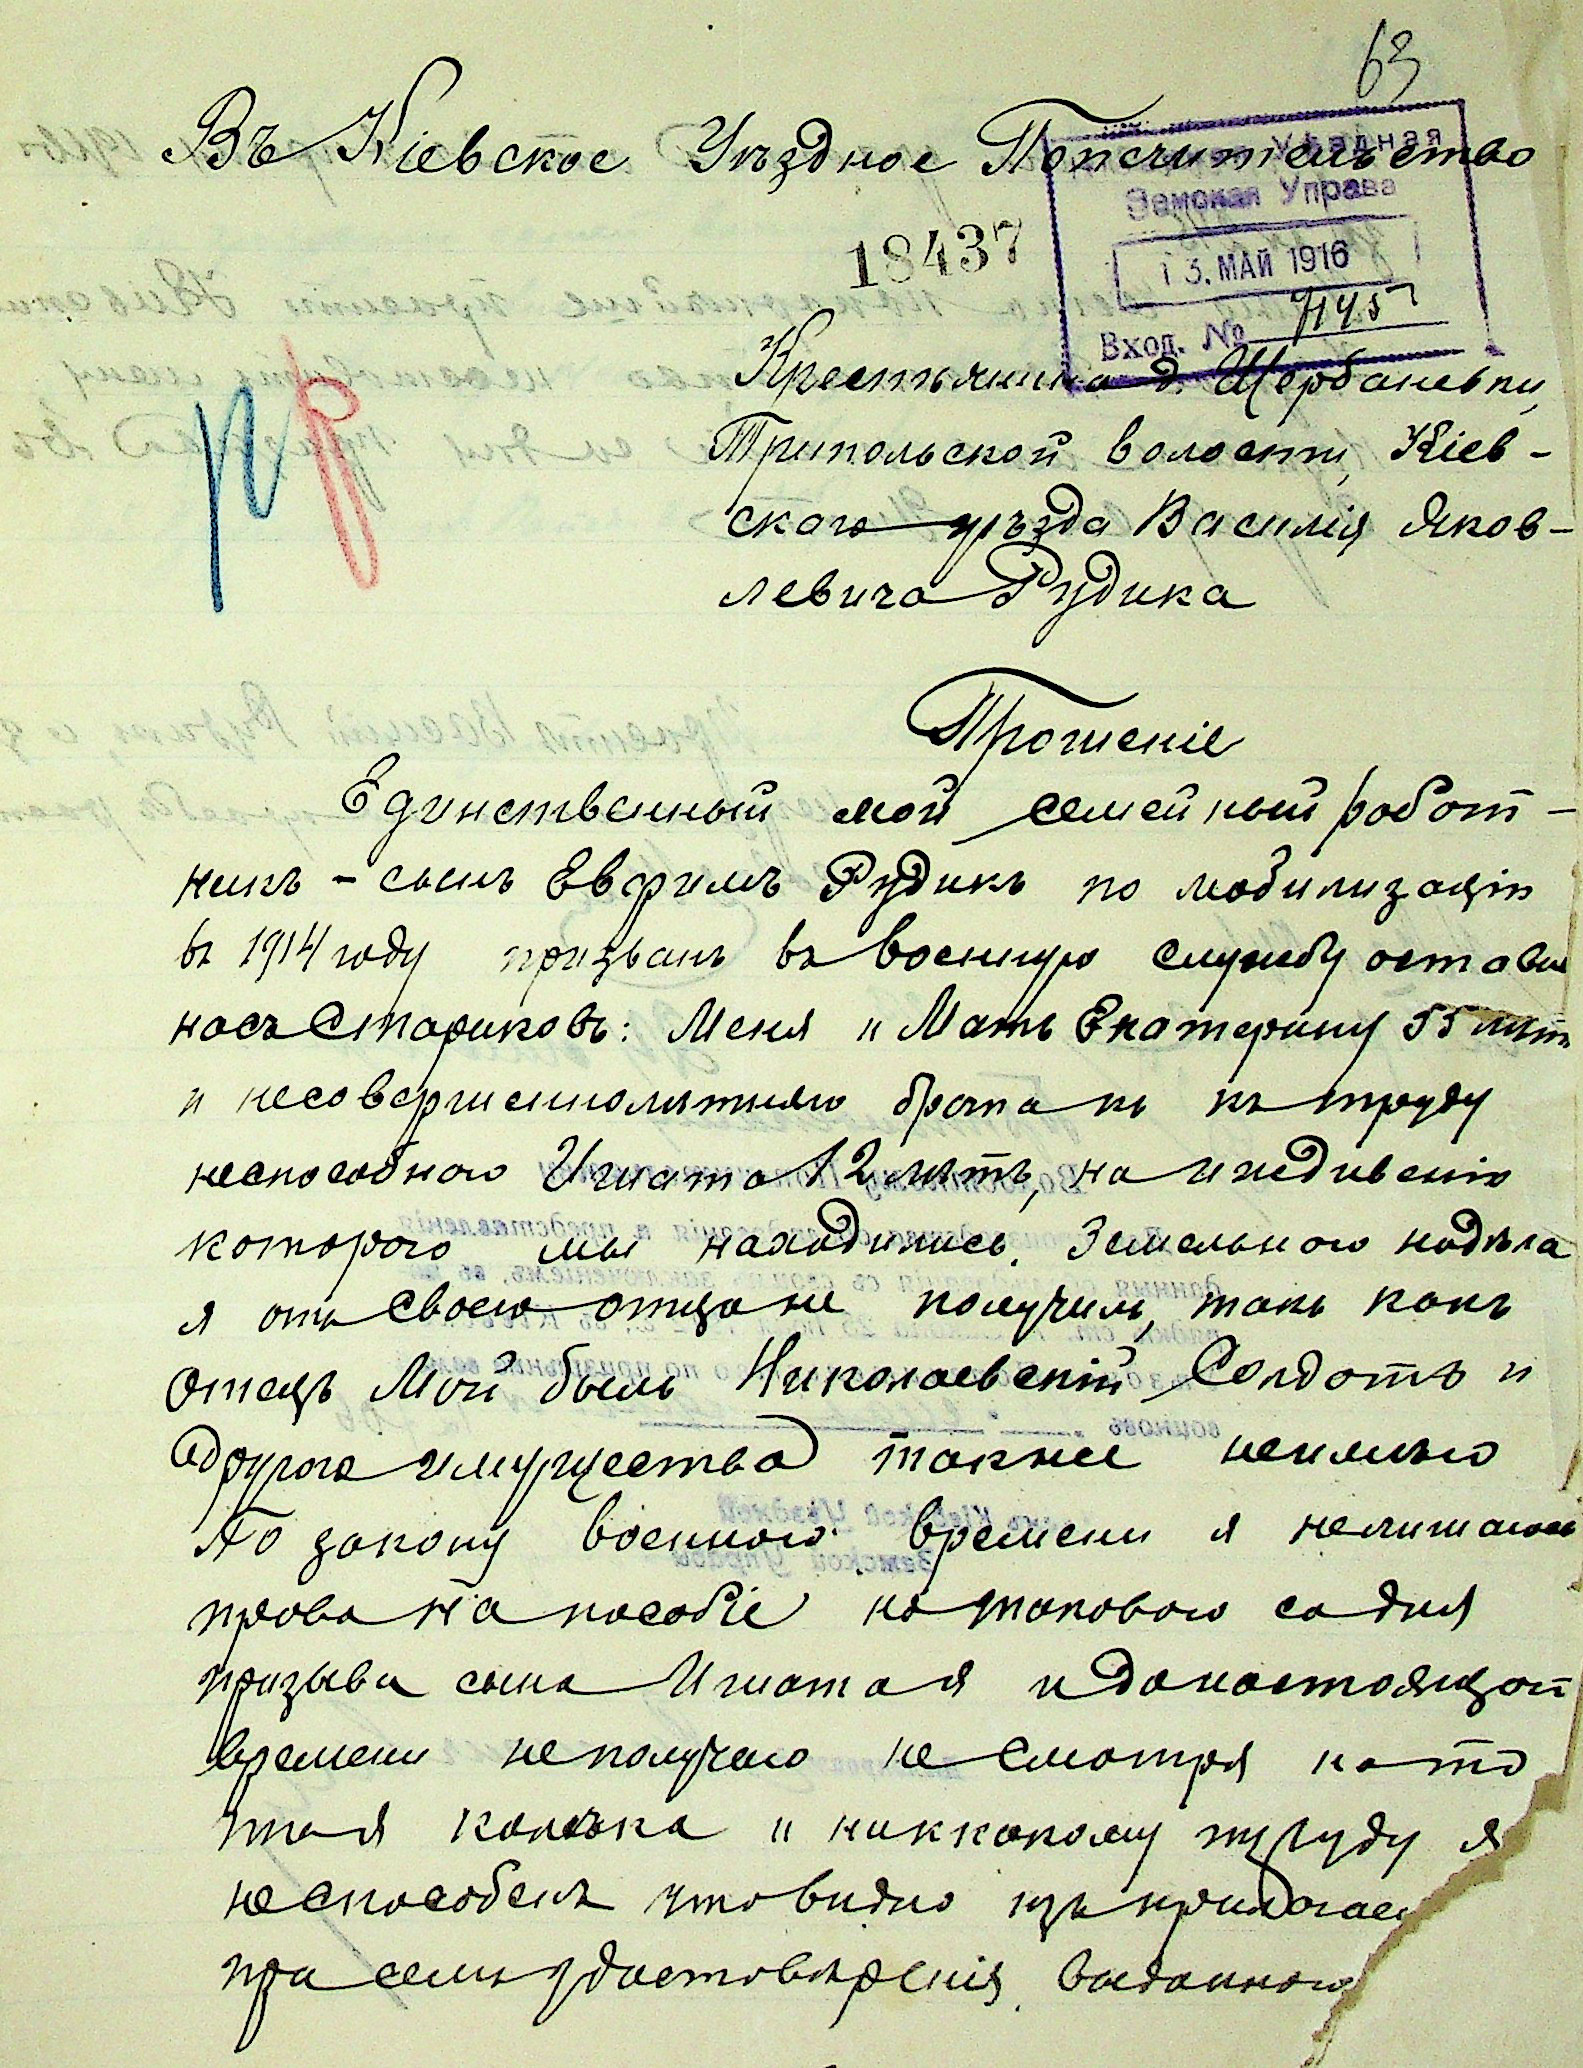 63
Въ Кіевское Уѣздное Попечительство
Уѣздная
Земская Управа
18437
13. МАЙ 1916
Вход. № 7145
Крестьянина д. Щербаневки,
Трипольской волости, Кіев-
ского уѣзда Василія Яков-
левича Рудика
Прошеніе
Единственный мой семейный работ-
никъ - сынъ Евфимъ Рудикъ по мобилизаціи
въ 1914 году призванъ въ военную службу оставив
насъ Стариковъ: Меня и Мать Екатерину 55 лѣтъ
и несовершеннолѣтняго брата къ труду
неспособного Игната 12 лѣтъ, на иждивеніи
которого мы находились. Земельного надѣла
я отъ своего отца не получилъ, такъ какъ
отецъ Мой былъ Николаевскій Солдатъ и
другого имущества также неимѣю
По закону военного времени я нелишаюсь
права на пособіе но такового со дня
призыва сына Игната я и донастоящаго
времени неполучаю не смотря на то
что я калѣка и никкакому труду я
неспособенъ что видно изъ прилагаем
при семъ удостовѣренія, выданного